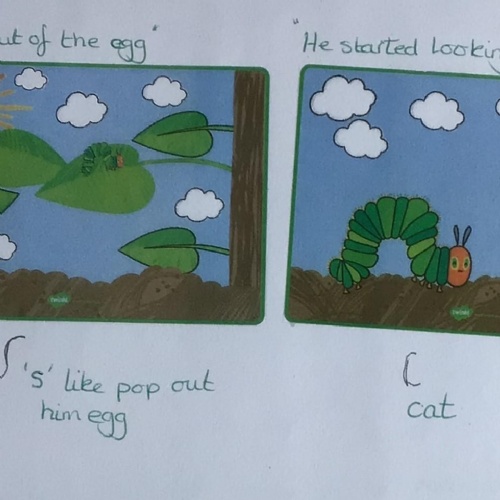 ut of the egg"
"He started looking
twinkl
twinkl
's' like pop out
him egg
cat